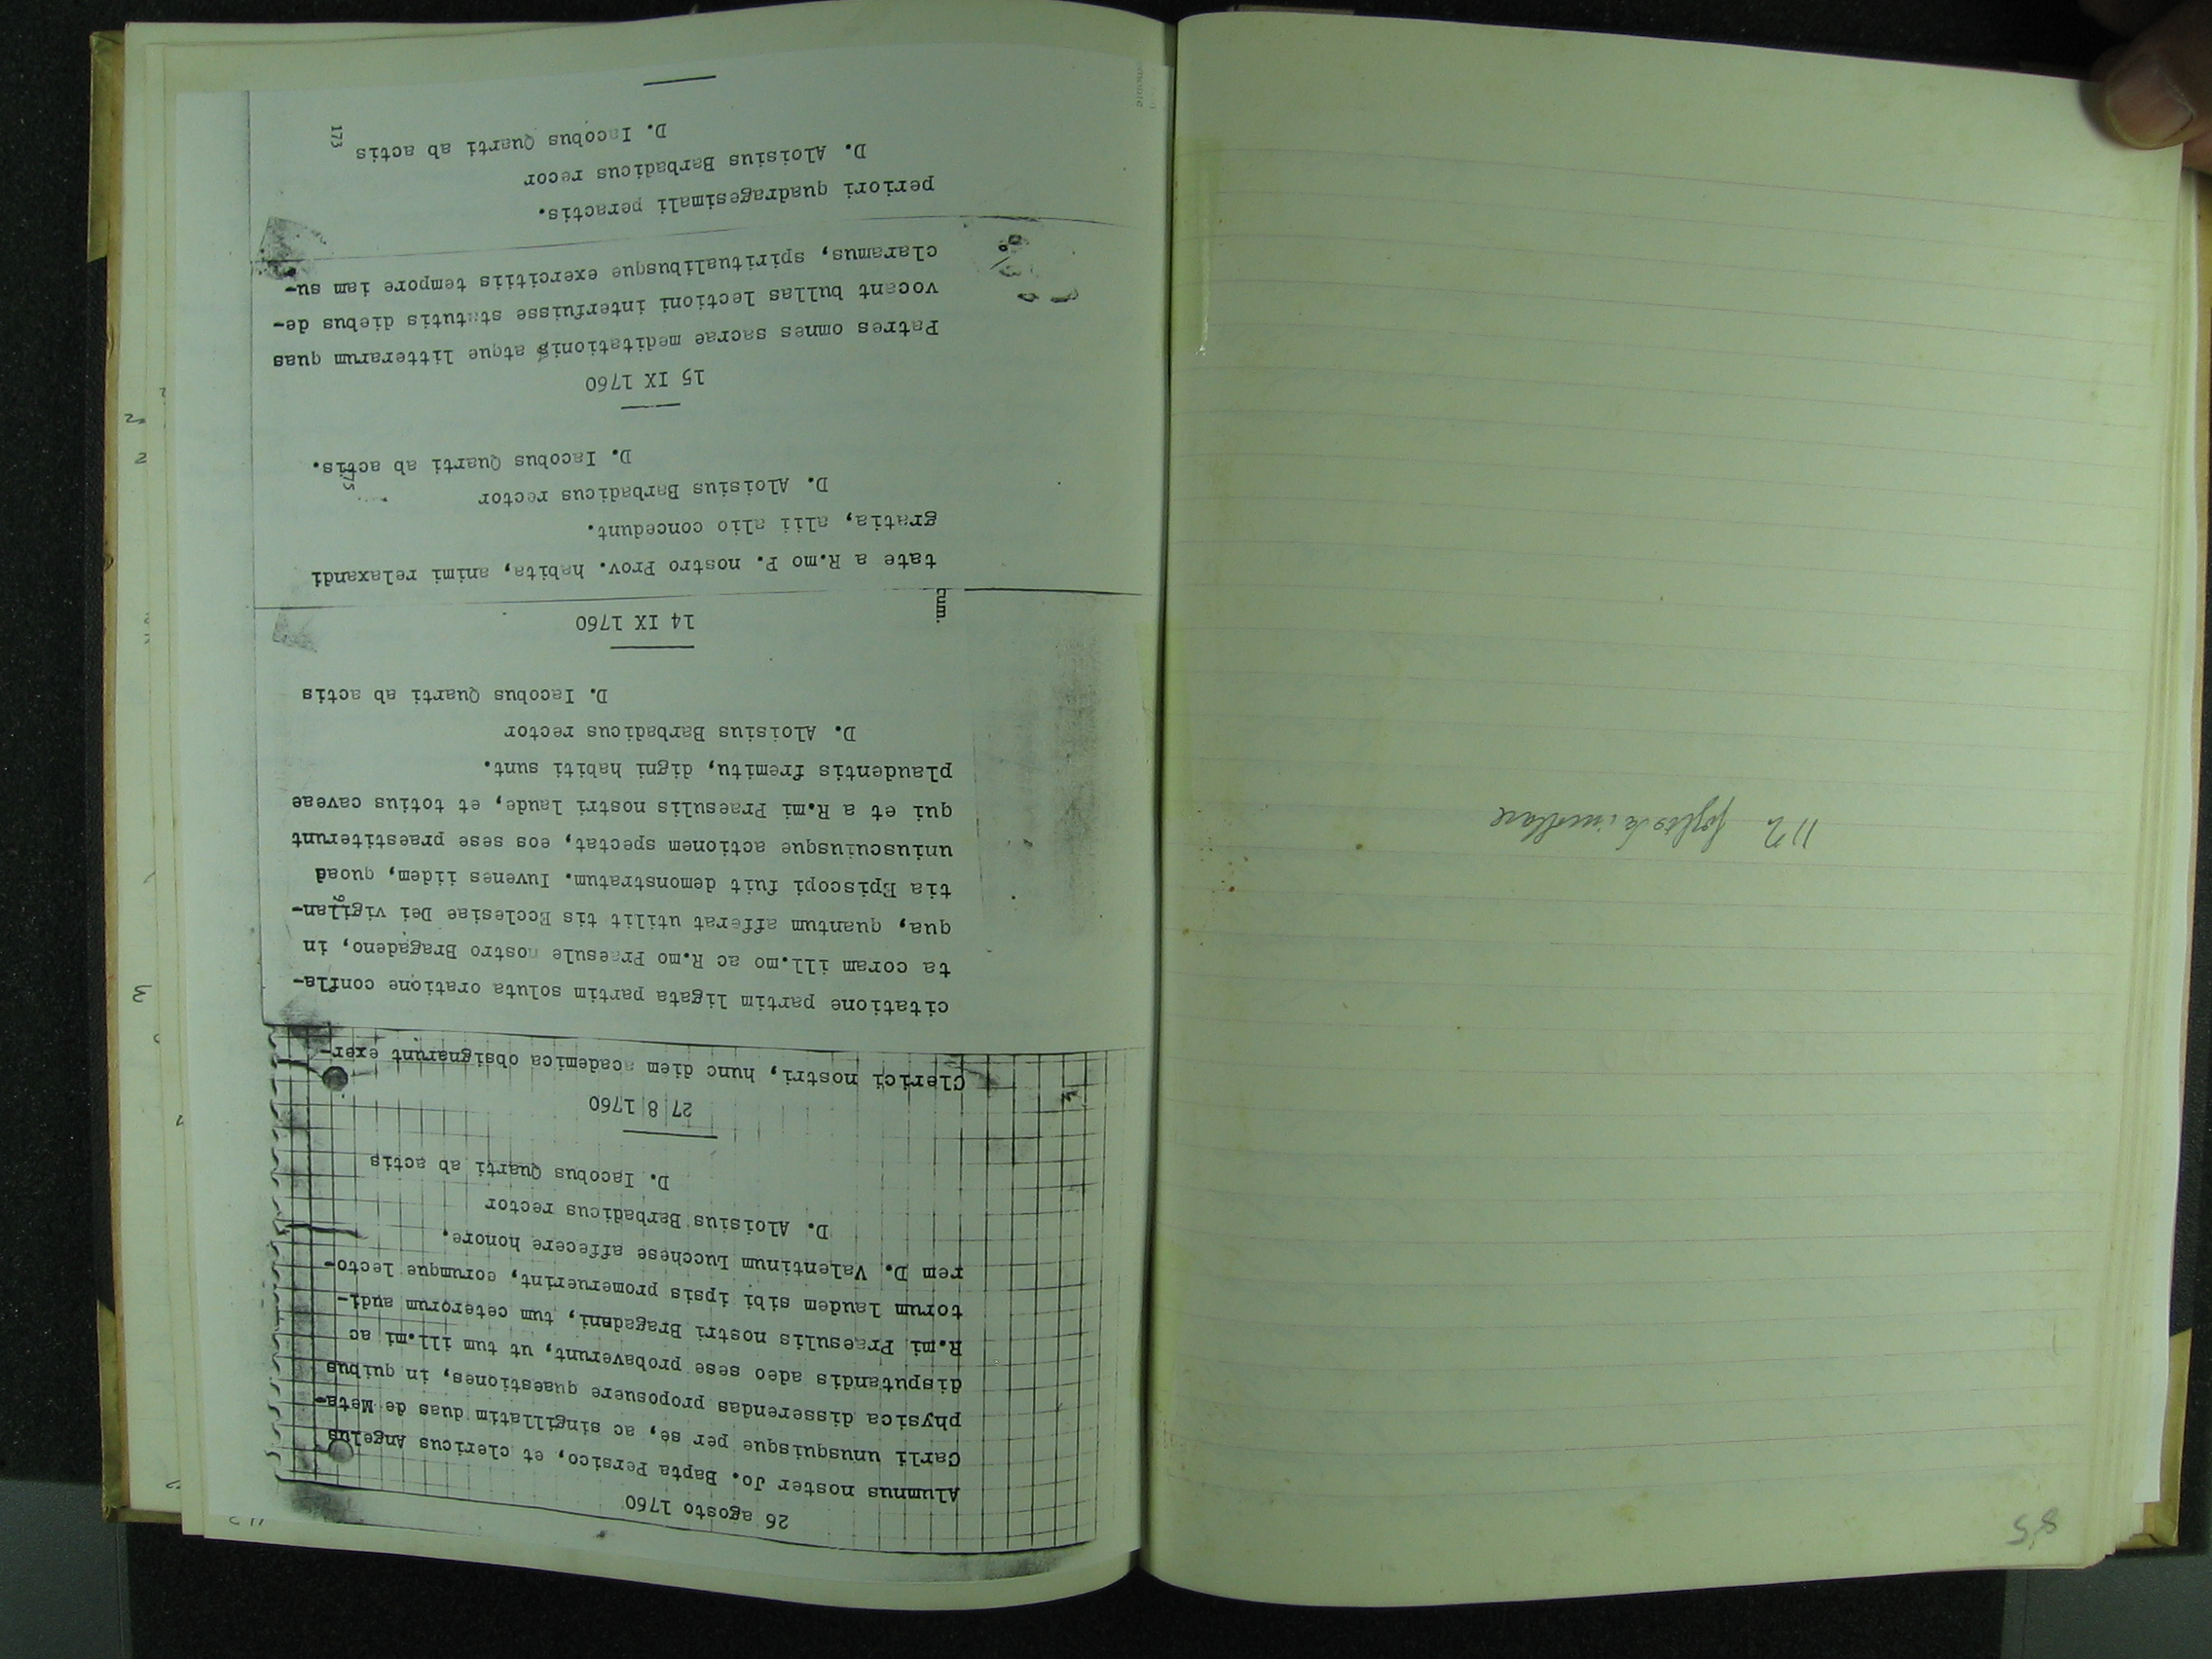 26 agosto 1760
Alumnus noster Jo. Bapta Persico, et clericus Angelus
Carli unusquisque per se, ac singillatim duas de Meta-
physica disserendas proposuere quaestiones, in quibus
disputandis adeo sese probaverunt, ut tum ill.mi ac
R.mi Praesulis nostri Bragadeni, tum ceterorum audi-
torum laudem sibi ipsis promeruerint, eorumque lecto-
rem D. Valentinum Lucchese affecere honore.
D. Aloisius Barbadicus rector
D. Iacobus Quarti ab actis
27 8 1760
Clerici nostri, hunc diem academica obsignarunt exer-
citatione partim ligata partim soluta oratione confla-
ta coram ill.mo ac R.mo Praesule nostro Bragadeno, in
qua, quantum afferat utilit tis Ecclesiae Dei vigilan-
tia Episcopi fuit demonstratum. Iuvenes iidem, quoad
uniuscuiusque actionem spectat, eos sese praestiterunt
qui et a R.mi Praesulis nostri laude, et totius caveae
plaudentis fremitu, digni habiti sunt.
D. Aloisius Barbadicus rector
D. Iacobus Quarti ab actis
14 IX 1760
cum.
tate a R.mo P. nostro Prov. habita, animi relaxandi
gratia, alii alio concedunt.
D. Aloisius Barbadicus rector
D. Iacobus Quarti ab actis.
175
15 IX 1760
Patres omnes sacrae meditationis atque litterarum quas
vocant bullas lectioni interfuisse statutis diebus de-
claramus, spiritualibusque exercitiis tempore iam su-
periori quadragesimali peractis.
D. Aloisius Barbadicus recor
D. Iacobus Quarti ab actis
173
112
85